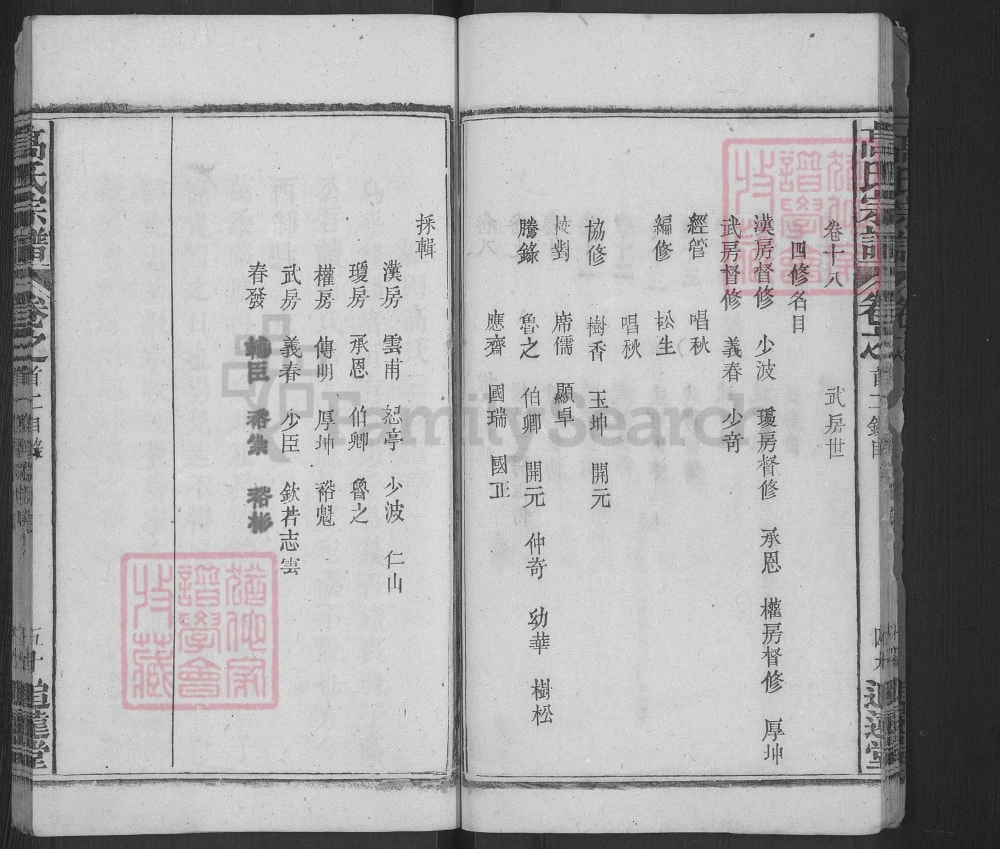 卷十八 武房世
四修名目
漢房督修 少波 瓊房督修 承恩 權房督修 厚坤
武房督修 義春 少奇
經管 唱秋
編修 松生
唱秋
協修 樹香 玉坤 開元
校對 席儒 顯卓
謄錄 魯之 伯卿 開元 仲奇 幼華 樹松
應齋 國瑞 國正
採輯
漢房 雲甫 恕亭 少波 仁山
瓊房 承恩 伯卿 魯之
權房 傳明 厚坤 裕魁
武房 義春 少臣 欽若 志雲
春發 輔臣 裕崇 裕彬
高氏宗譜 卷之首
五十
追遠堂
高氏宗譜 卷之首
追遠堂
FamilySearch